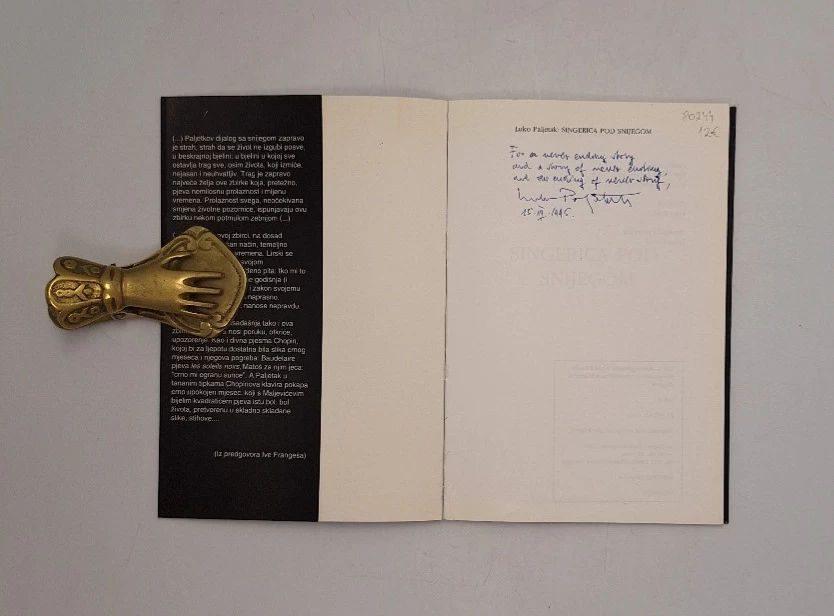 (...) Paljetkov dijalog sa snijegom zapravo
je strah, strah da se život ne izgubi posve,
u beskrajnoj bjelini; u bjelini u kojoj sve
ostavlja trag sve, osim života, koji izmiče,
nejasan i neuhvatljiv. Trag je zapravo
najveća želja ove zbirke koja, pretežno,
pjeva nemilosnu prolaznost i mijenu
vremena. Prolaznost svega, neočekivana
smjena životne pozornice, ispunjavaju ovu
zbirku nekom potmulom zebnjom (...)
ovoj zbirci, na dosad
način, temeljno
vremena. Lirski se
svojom
pita: tko mi to
godišnja (i
i zakon svojemu
naprasno,
nanose napravdu.
sadašnja tako i ova
nosi poruku, otkriće,
upozorenje. Kao i divna pjesma Chopin,
kojoj bi za ljepotu dostatna bila slika crnog
mjeseca i njegova pogreba: Baudelaire
pjeva les soleils noirs, Matoš za njim jeca:
"crno mi ogranu sunce". A Paljetak u
tananim tipkama Chopinova klavira pokapa
crno upokojen mjesec, koji s Maljevičevim
bijelim kvadratićem pjeva istu bol: bol
života, pretvorenu u skladno skladane
slike, stihove....
(Iz predgovora Ive Frangeša)
80244
12€
Luko Paljetak: SINGERICA POD SNIJEGOM
For a never ending story
and a story of never ending,
and ending of never story,
Luko Paljetak
15. III. 1995.
SINGERICA POD
SNIJEGOM